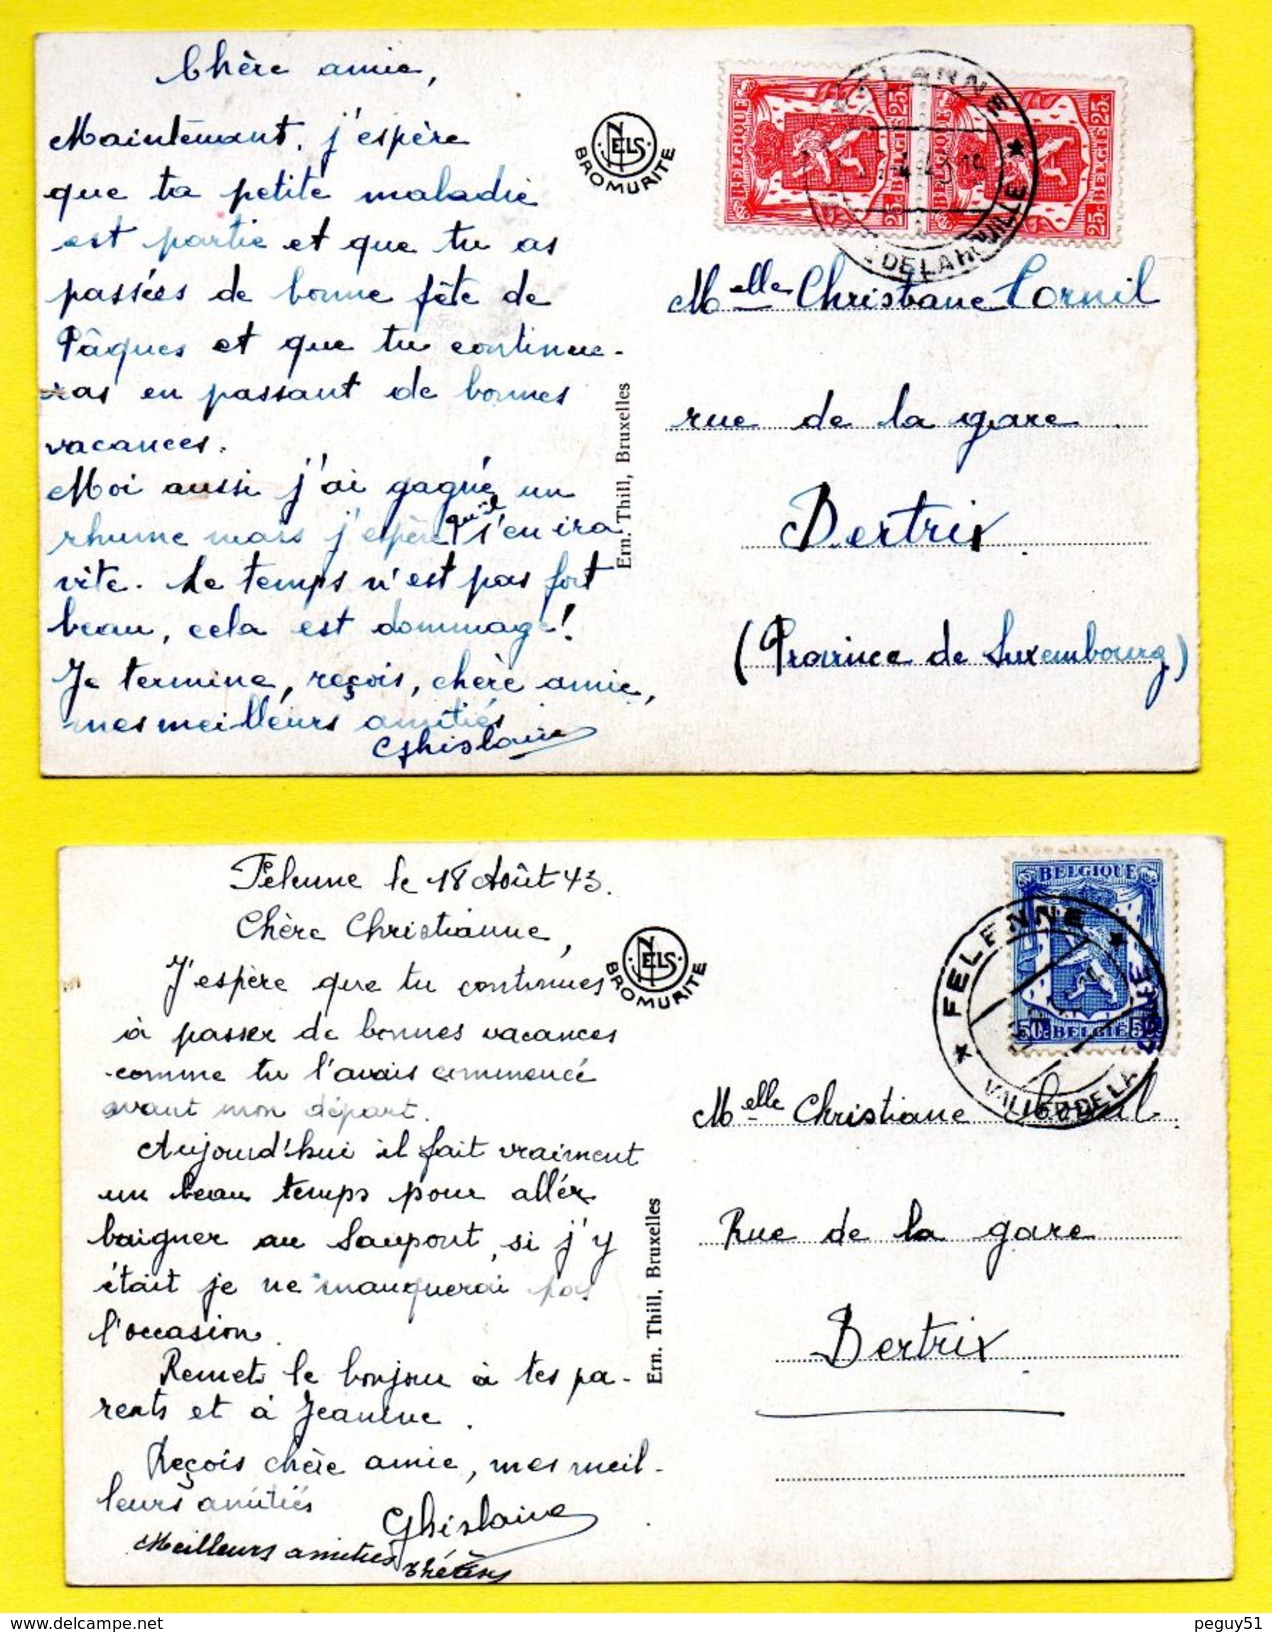 Chère amie,
Maintenant, j'espère
que ta petite maladie
est partie et que tu as
passées de bonne fête de
Pâques et que tu continue-
ras en passant de bonnes
vacances.
Moi aussi j'ai gagné un
rhume mais j'espère qu'il s'en ira
vite. Le temps n'est pas fort
beau, cela est dommage!
Je termine, reçois, chère amie,
mes meilleurs amitiés
Ghislaine
NELS
BROMURITE
Ern. Thill, Bruxelles
BELGIQUE 25c BELGIË 25c
BELGIQUE 25c BELGIË 25c
DE LA HOUILLE
Melle Christiane Cornil
rue de la gare
Bertrix.
(Province de Luxembourg)
Felenne le 18 Août 43.
Chère Christianne,
J'espère que tu continues
à passer de bonnes vacances
comme tu l'avais commencé
avant mon départ.
Aujourd'hui il fait vraiment
un beau temps pour allér
baigner au Saupont, si j'y
était je ne manquerai pas
l'occasion.
Remets le bonjour à tes pa-
rents et à Jeanine.
Reçois chère amie, mes meil-
leurs amitiés
Ghislaine
Meilleurs amitiés Thérèse
NELS
BROMURITE
Ern. Thill, Bruxelles
BELGIQUE
50c BELGIË 50c
FELENNE
DE LA
Melle Christiane Cornil.
Rue de la gare
Bertrix
peguy51